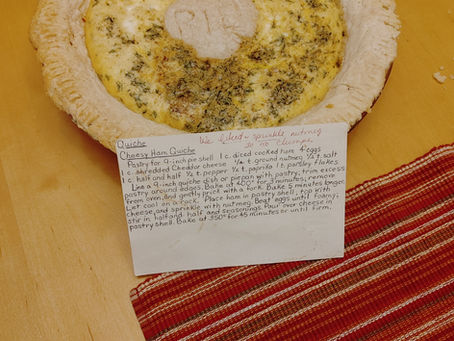 RIP
Quiche
We liked - sprinkle nutmeg
so no clumps
Cheesy Ham Quiche
Pastry for 9-inch pie shell 1 c. diced cooked ham 4 eggs
1 c. shredded Cheddar cheese 1/4 t. ground nutmeg 1/2 t. salt
1 c. half and half 1/4 t. pepper 1/4 t. paprika 1 t. parsley flakes
Line a 9-inch quiche dish or piepan with pastry; trim excess
pastry around edges. Bake at 400° for 3 minutes; remove
from oven, and gently prick with a fork. Bake 5 minutes longer.
Let cool on a rack. Place ham in pastry shell, top with
cheese, and sprinkle with nutmeg. Beat eggs until foamy;
stir in half and half and seasonings. Pour over cheese in
pastry shell. Bake at 350° for 45 minutes or until firm.